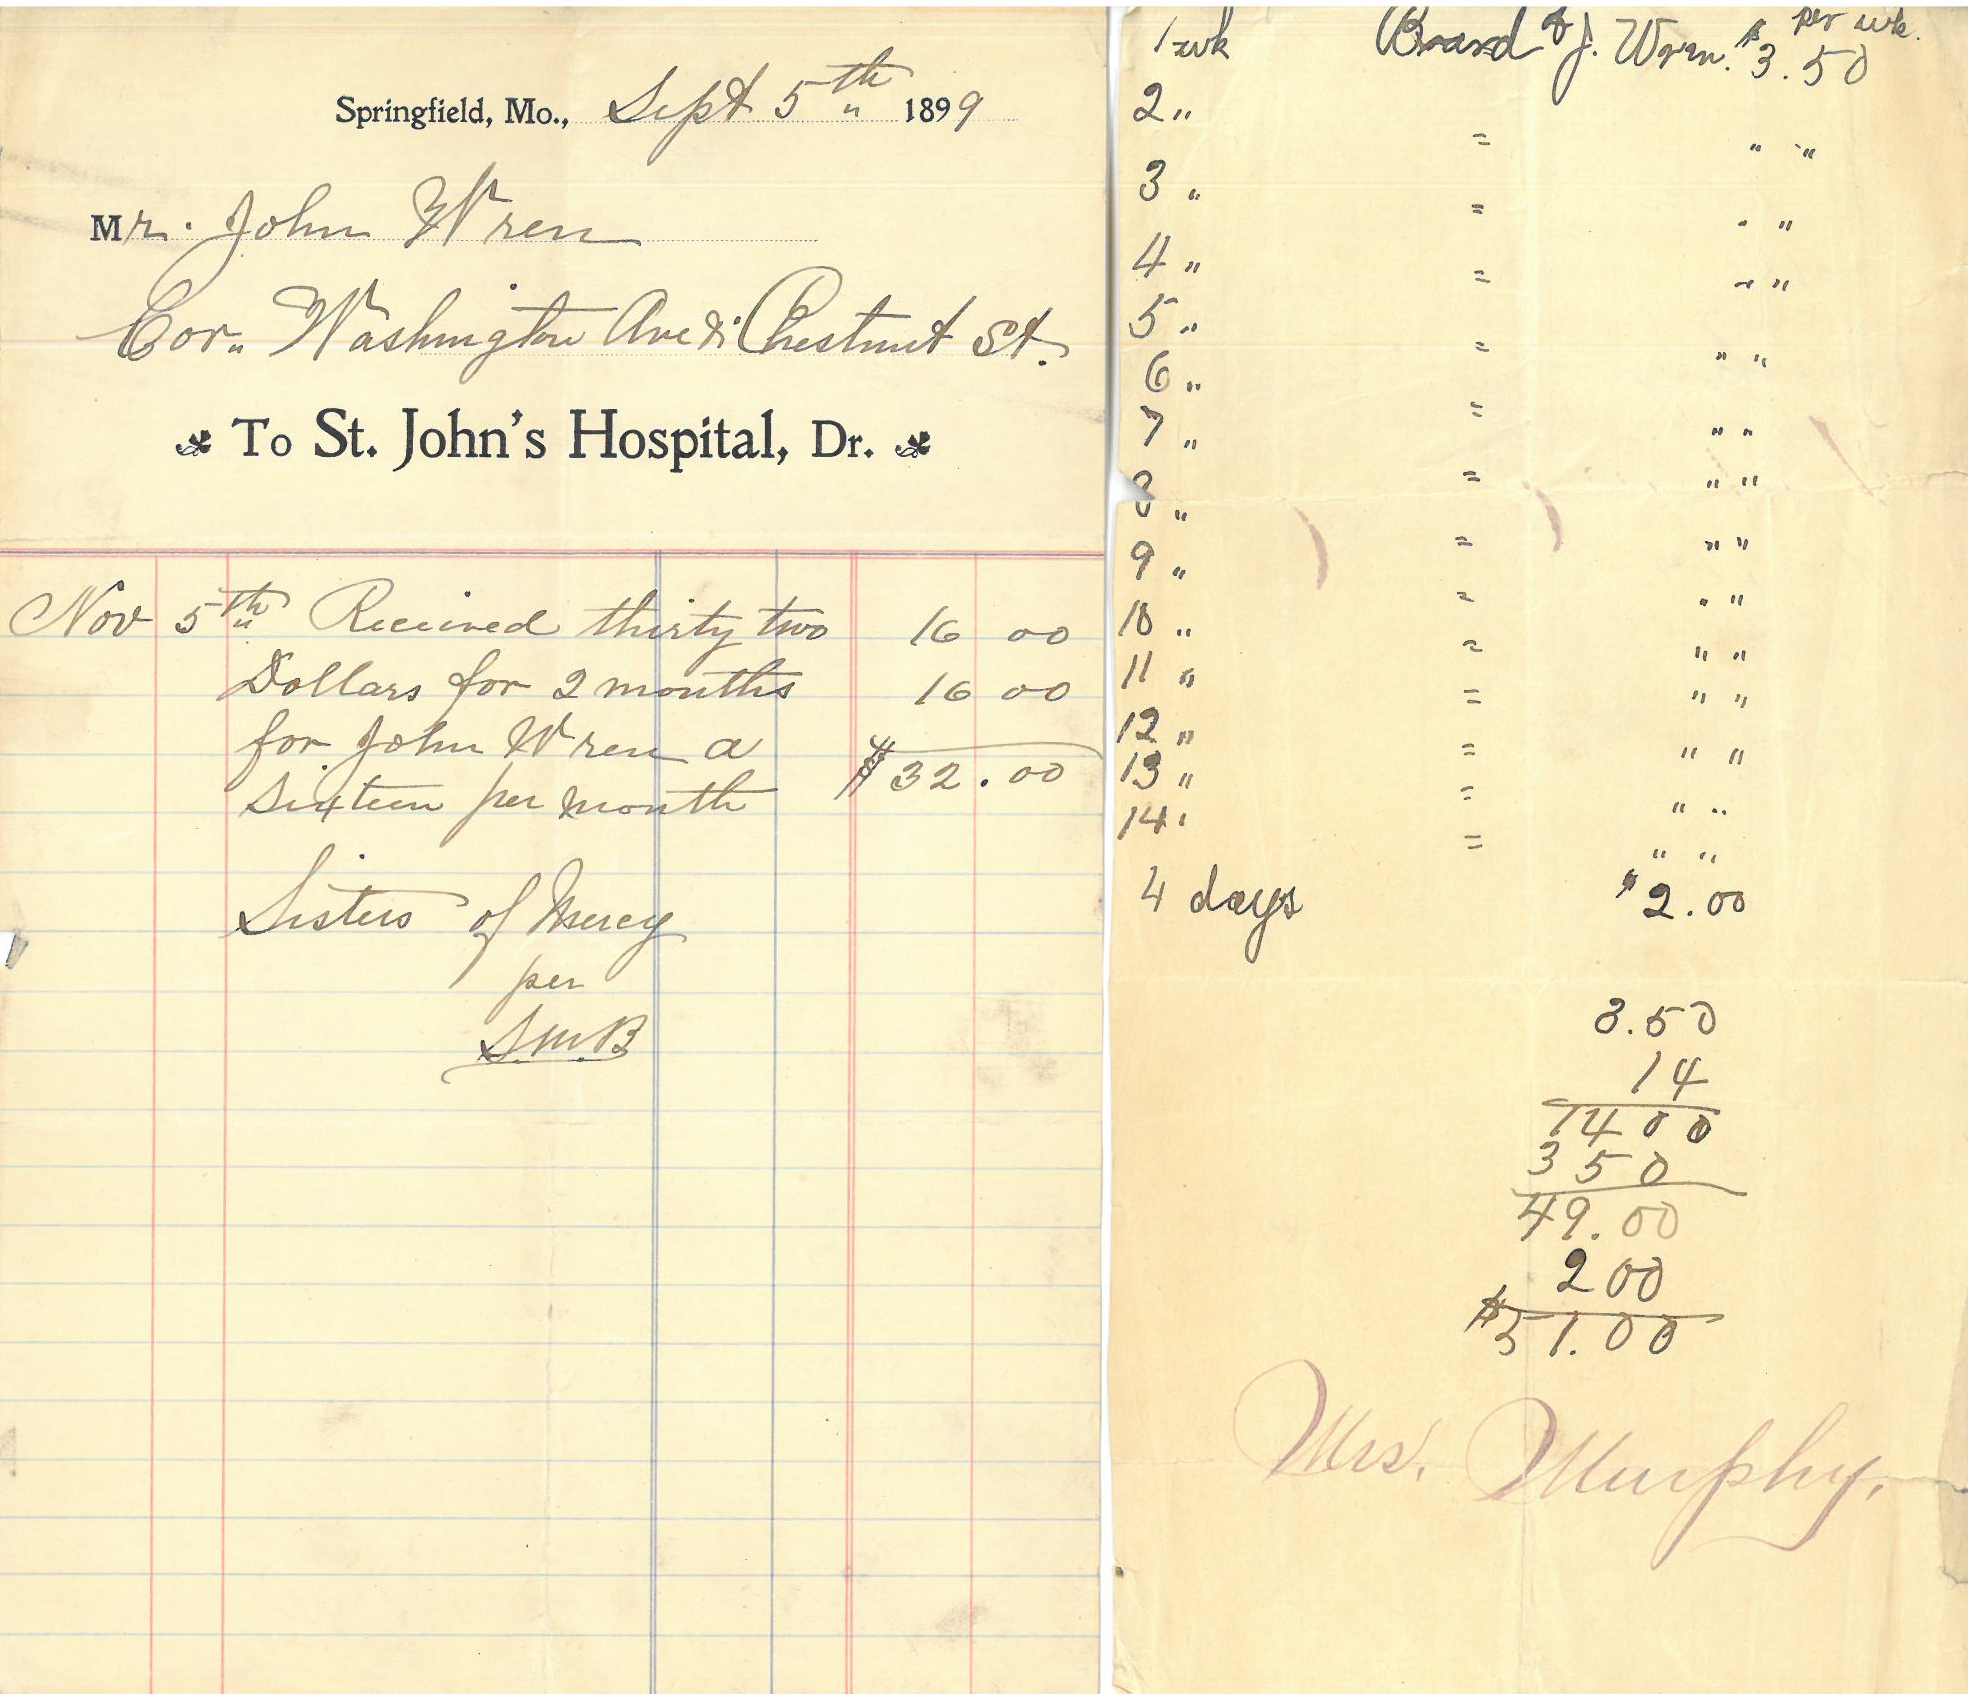 Springfield, Mo., Sept 5th 1899
Mr. John Wren
Cor. Washington Ave & Chestnut St.
To St. John's Hospital, Dr.
Nov 5th Received thirty two 16 00
Dollars for 2 months 16 00
for John Wren a
$32.00
Sixteen per month
Sisters of Mercy
per
S.M.B
1 wk Board of J. Wren. $3.50 per wk.
2 "
= " "
3 "
= " "
4 "
= " "
5 "
= " "
6 "
= " "
7 "
= " "
8 "
= " "
9 "
= " "
10 "
= " "
11 "
= " "
12 "
= " "
13 "
= " "
14 "
= " "
4 days $2.00
3.50
14
1400
350
49.00
200
$51.00
Mrs. Murphy.